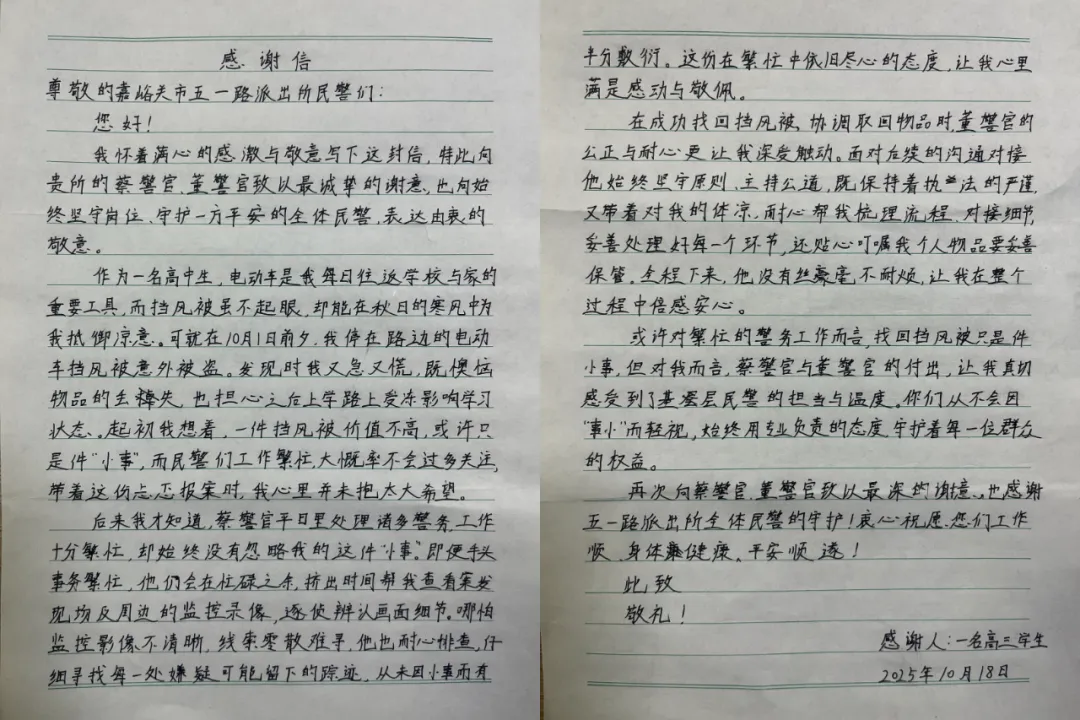 感谢信
尊敬的嘉峪关市五一路派出所民警们：
您好！
我怀着满心的感激与敬意写下这封信，特此向
贵所的蔡警官、董警官致以最诚挚的谢意，也向始
终坚守岗位、守护一方平安的全体民警，表达由衷的
敬意。
作为一名高中生，电动车是我每日往返学校与家的
重要工具，而挡风被虽不起眼，却能在秋日的寒风中为
我抵御凉意。可就在10月1日前夕，我停在路边的电动
车挡风被意外被盗。发现时我又急又慌，既懊恼
物品的丢失，也担心之后上学路上受冻影响学习
状态。起初我想着，一件挡风被价值不高，或许只
是件“小事”，而民警们工作繁忙，大概率不会过多关注，
带着这份忐忑报案时，我心里并未抱太大希望。
后来我才知道，蔡警官平日里处理诸多警务，工作
十分繁忙，却始终没有忽略我的这件“小事”。即便手头
事务繁忙，他们会在忙碌之余，挤出时间帮我查看案发
现场及周边的监控录像，逐侦辨认画面细节。哪怕
监控影像不清晰，线索零散难寻，他也耐心排查，仔
细寻找每一处嫌疑可能留下的踪迹，从未因小事而有
半分敷衍。这份在繁忙中依旧尽心的态度，让我心里
满是感动与敬佩。
在成功找回挡风被、协调取回物品时，董警官的
公正与耐心更让我深受触动。面对后续的沟通对接
他始终坚守原则、主持公道，既保持着执法的严谨，
又带着对我的体凉，耐心帮我梳理流程、对接细节，
妥善处理好每一个环节，还贴心叮嘱我个人物品要妥善
保管。全程下来，他没有丝毫不耐烦，让我在整个
过程中倍感安心。
或许对繁忙的警务工作而言，找回挡风被只是件
小事，但对我而言，蔡警官与董警官的付出，让我真切
感受到了基层民警的担当与温度。你们从不会因
“事小”而轻视，始终用专业负责的态度，守护着每一位群众
的权益。
再次向蔡警官、董警官致以最深的谢意，也感谢
五一路派出所全体民警的守护！衷心祝愿您们工作
顺、身体健康、平安顺遂！
此致
敬礼！
感谢人：一名高三学生
2025年10月18日